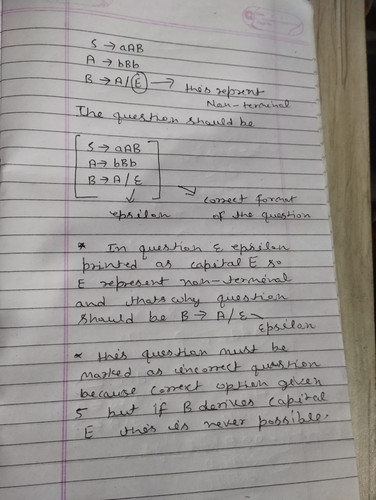 S → aAB
A → bBb
B → A/E → this reprent
Non-terminal
The question should be
S → aAB
A → bBb
B → A/ε
correct format
epsilon of the question
* In question ε epsilon
printed as capital E so
E represent non-terminal
and thats why question
should be B → A/ε
Epsilon
* this question must be
marked as incorrect question
because correct option given
5 but if B derives capital
E this is never possible.